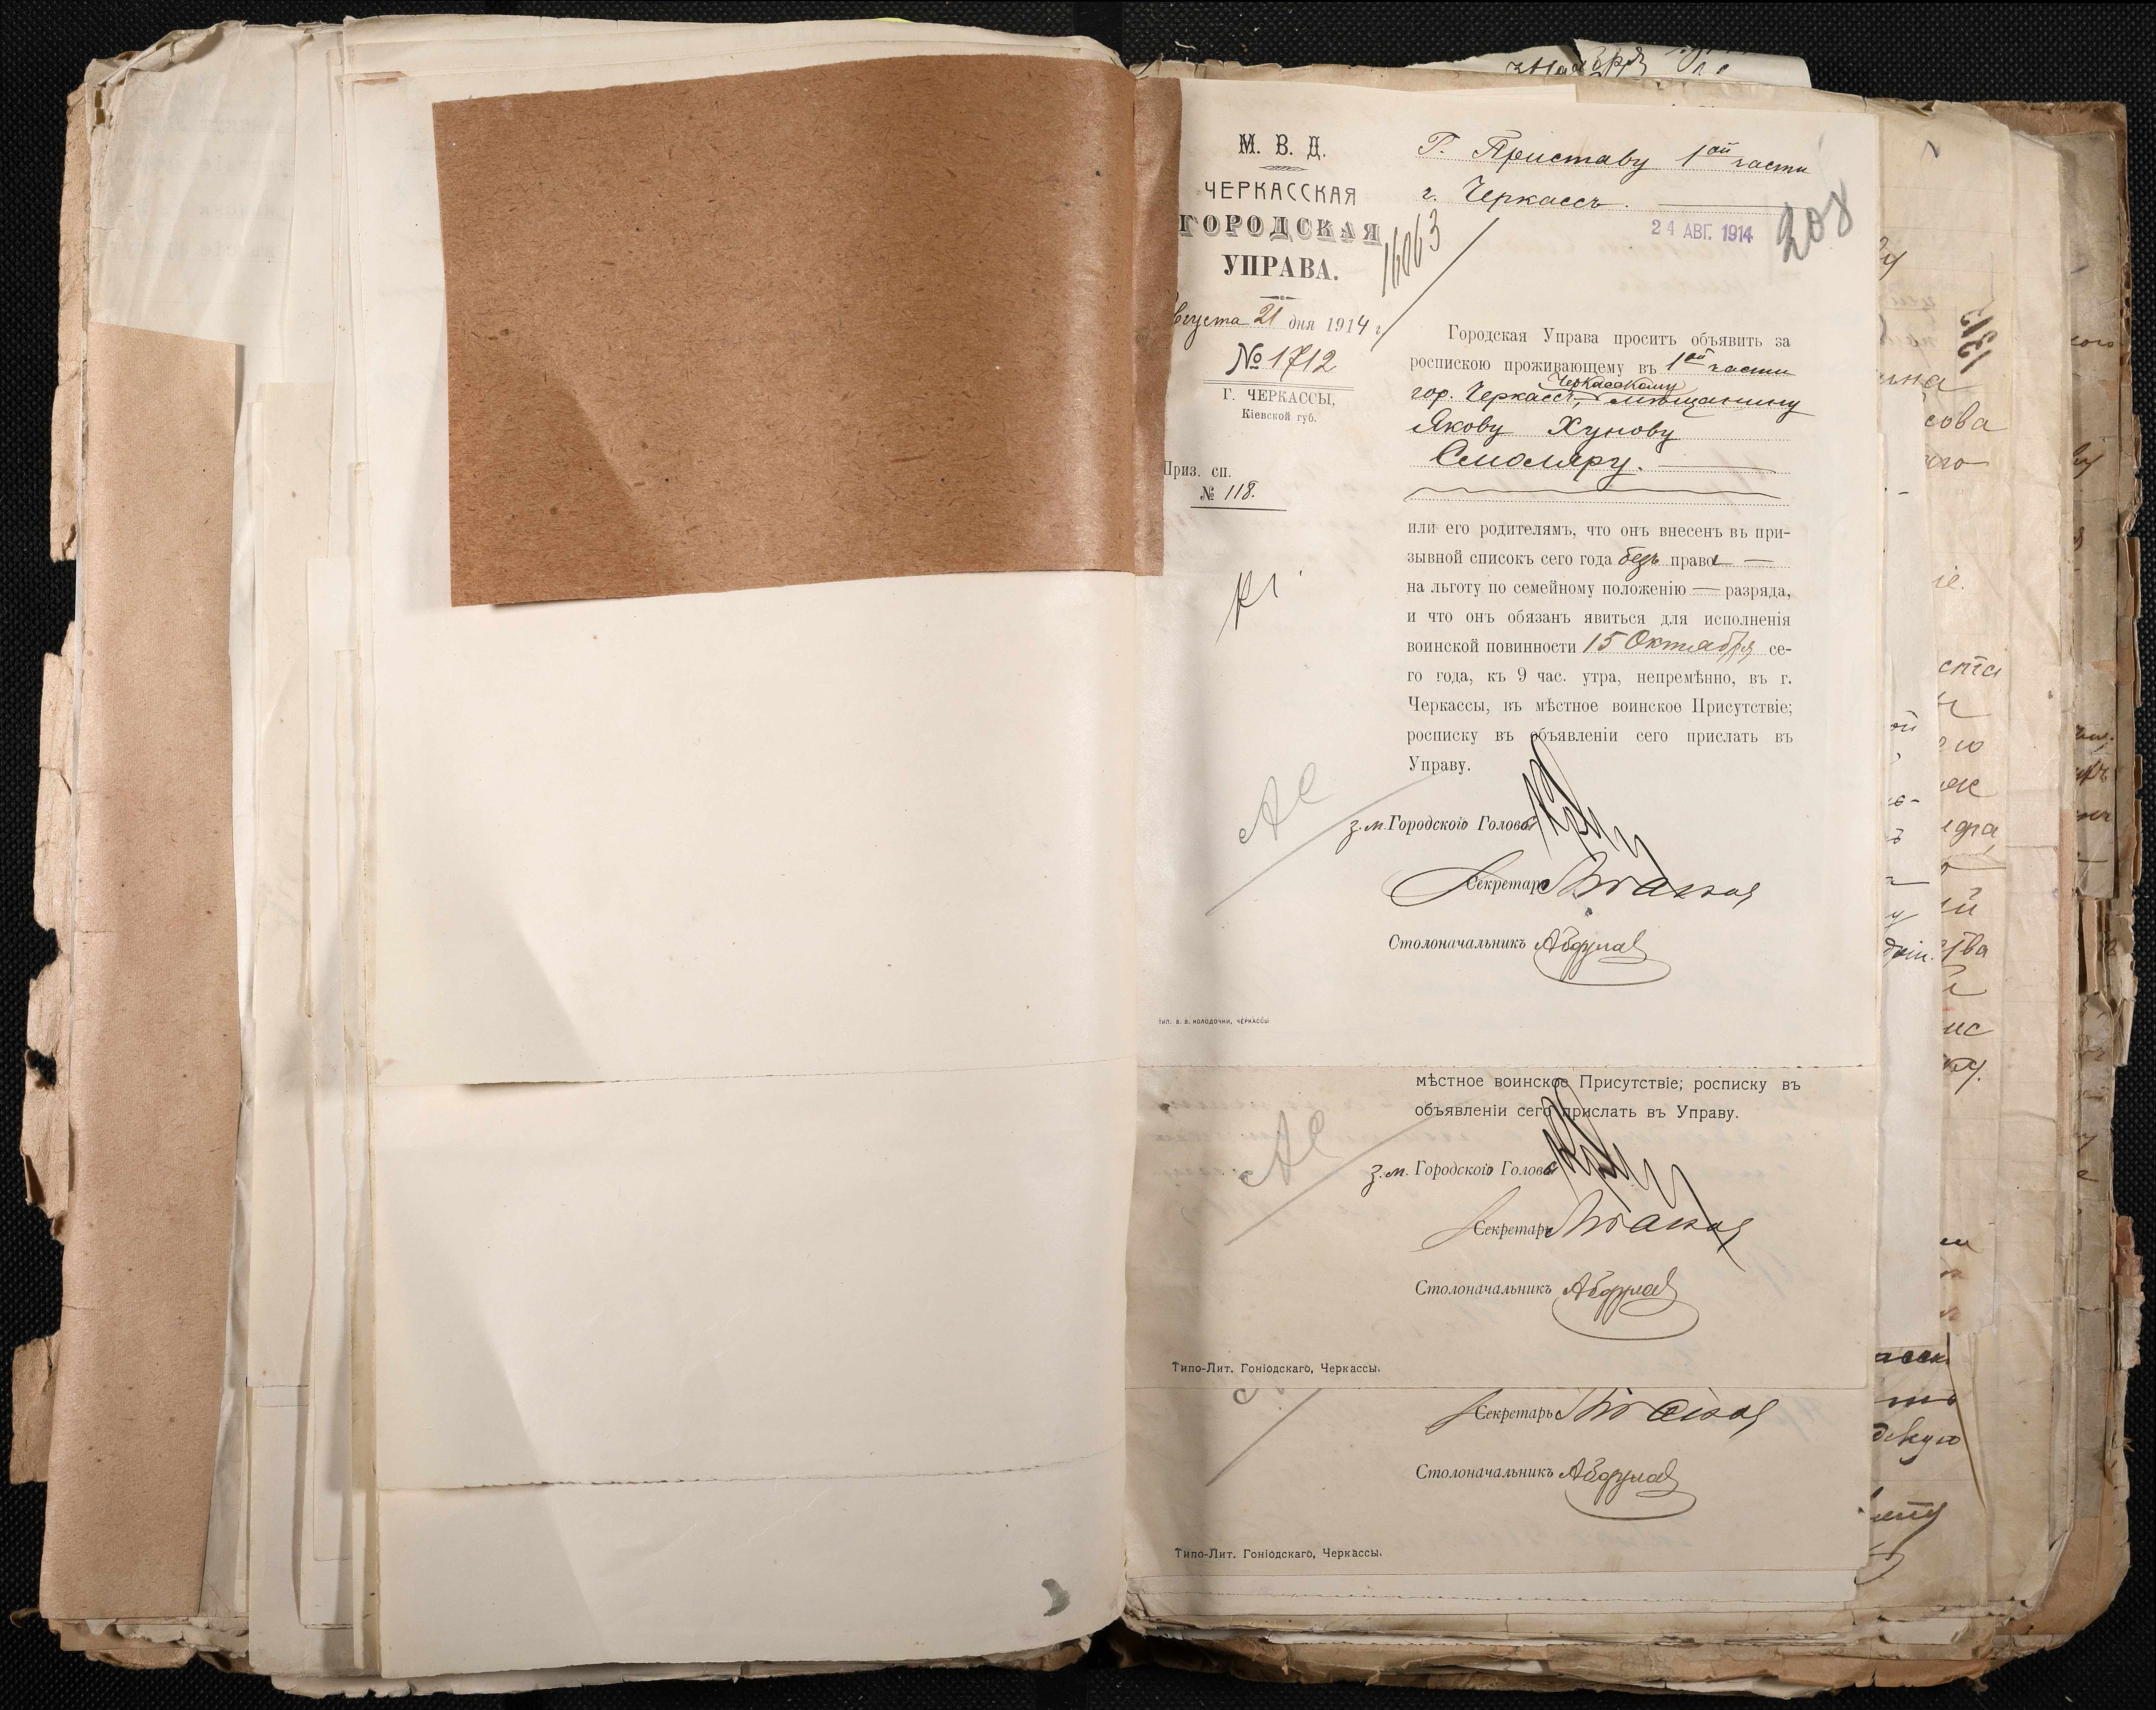 М. В. Д.
ЧЕРКАССКАЯ
ГОРОДСКАЯ
УПРАВА.
Августа 21 дня 1914 г.
№ 1712
Г. ЧЕРКАССЫ,
Кіевской губ.
Приз. сп.
№ 118.
Г. Приставу 1ой части
г. Черкассъ.
16063
24 АВГ. 1914
208
Городская Управа проситъ объявить за
роспискою проживающему въ 1ой части
Черкасскому
гор. Черкассъ, мѣщанину
Якову Хунову
Смоляру.
или его родителямъ, что онъ внесенъ въ при-
зывной списокъ сего года безъ права —
на льготу по семейному положенію — разряда,
и что онъ обязан явиться для исполненія
воинской повинности 15 Октября се-
го года, къ 9 час. утра, непремѣнно, въ г.
Черкассы, въ мѣстное воинское Присутствіе;
росписку въ объявленіи сего прислать въ
Управу.
з.м. Городского Головы
Секретарь
Столоначальникъ
тип. В. В. Колодочки, Черкассы
мѣстное воинское Присутствіе; росписку въ
объявленіи сего прислать въ Управу.
з.м. Городского Головы
Секретарь
Столоначальникъ
Типо-Лит. Гоніодскаго, Черкассы.
Секретарь
Столоначальникъ
Типо-Лит. Гоніодскаго, Черкассы.